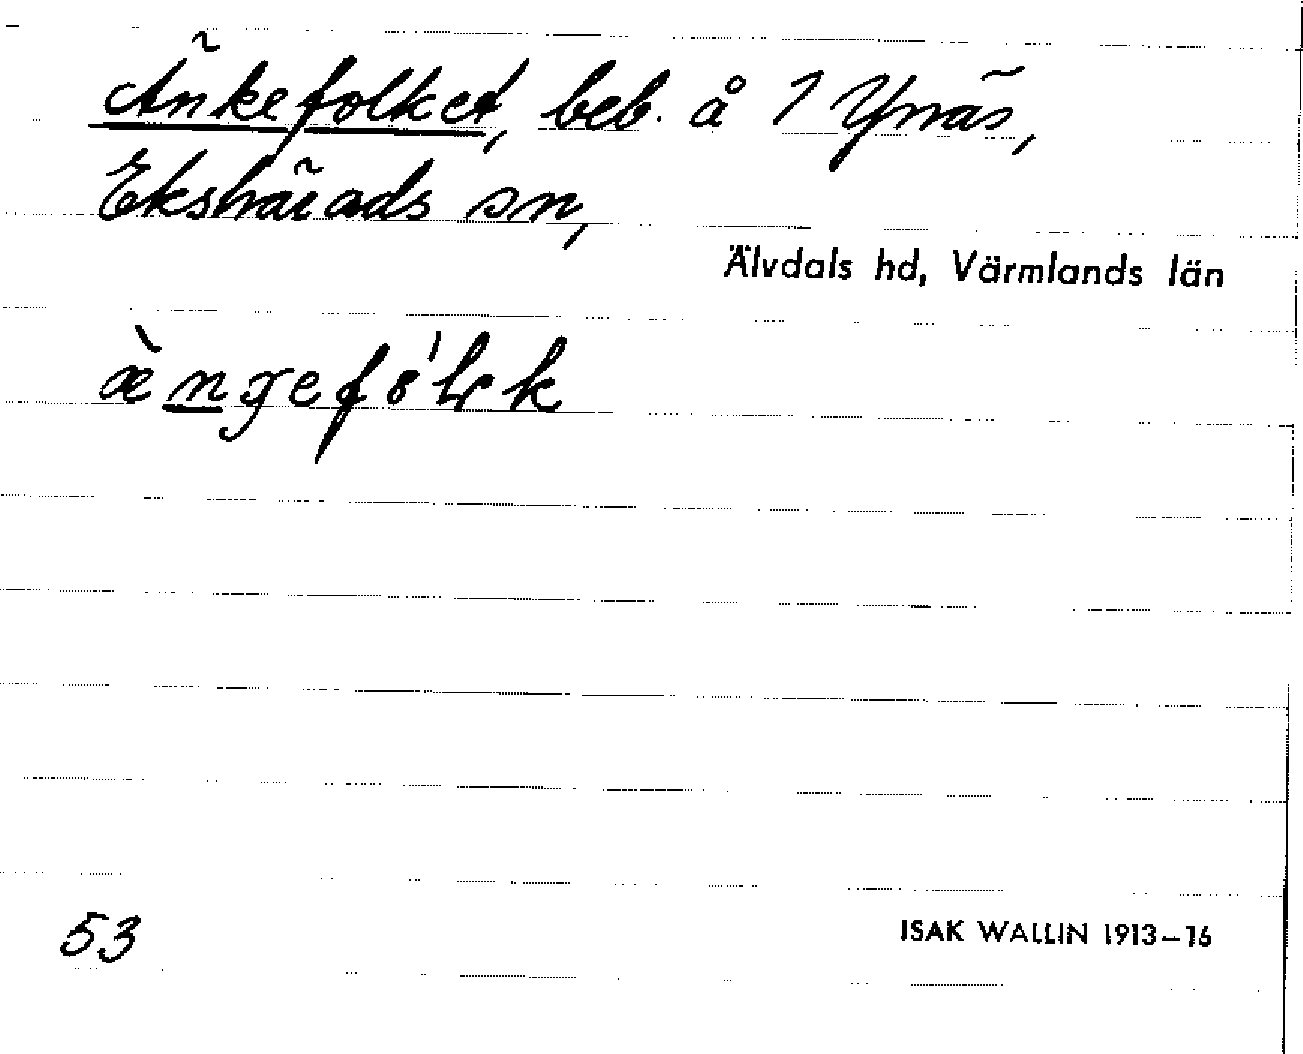 Änkefolket, beb. å 1 Ynäs,
Ekshärads sn,
Älvdals hd, Värmlands län
53
ISAK WALLIN 1913–16